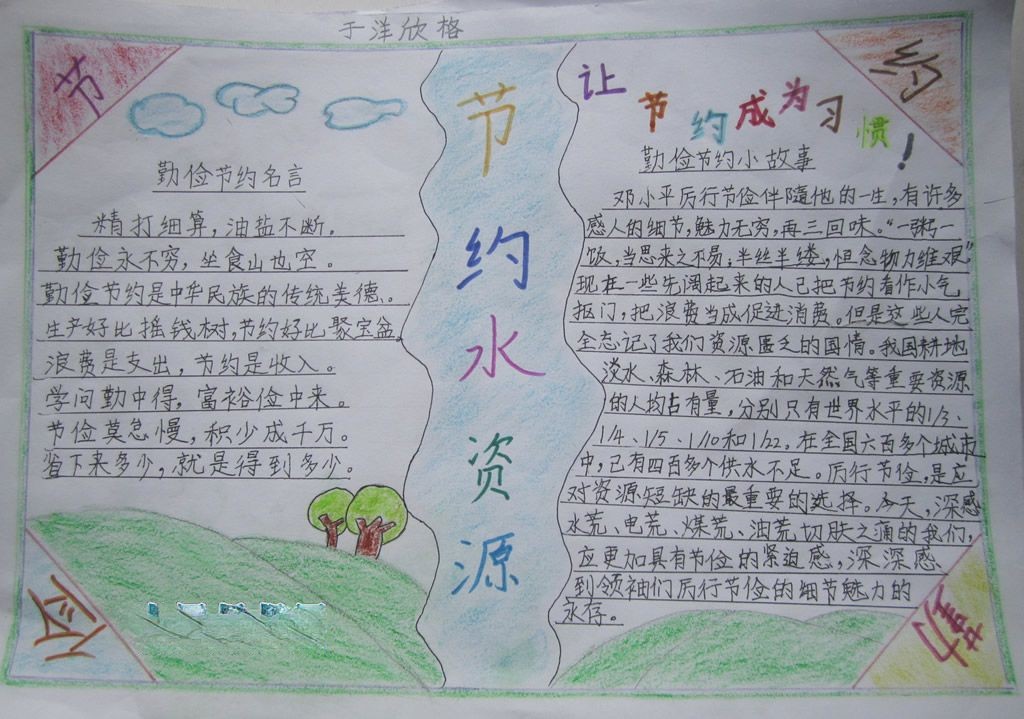 于洋欣格
节
约
俭
勤
节
约
水
资
源
让节约成为习惯!
勤俭节约名言
精打细算,油盐不断。
勤俭永不穷,坐食山也空。
勤俭节约是中华民族的传统美德。
生产好比摇钱树,节约好比聚宝盆
浪费是支出,节约是收入。
学问勤中得,富裕俭中来。
节俭莫怠慢,积少成千万。
省下来多少,就是得到多少。
勤俭节约小故事
邓小平厉行节俭伴随他的一生,有许多
感人的细节,魅力无穷,再三回味。“一粥一
饭,当思来之不易;半丝半缕,恒念物力维艰”
现在一些先阔起来的人已把节约看作小气
抠门,把浪费当成促进消费。但是这些人完
全忘记了我们资源匮乏的国情。我国耕地
淡水、森林、石油和天然气等重要资源
的人均占有量,分别只有世界水平的1/3、
1/4、1/5、1/10和1/22。在全国六百多个城市
中,已有四百多个供水不足。厉行节俭,是应
对资源短缺的最重要的选择。今天,深感
水荒、电荒、煤荒、油荒切肤之痛的我们,
应更加具有节俭的紧迫感,深深感
到领袖们厉行节俭的细节魅力的
永存。